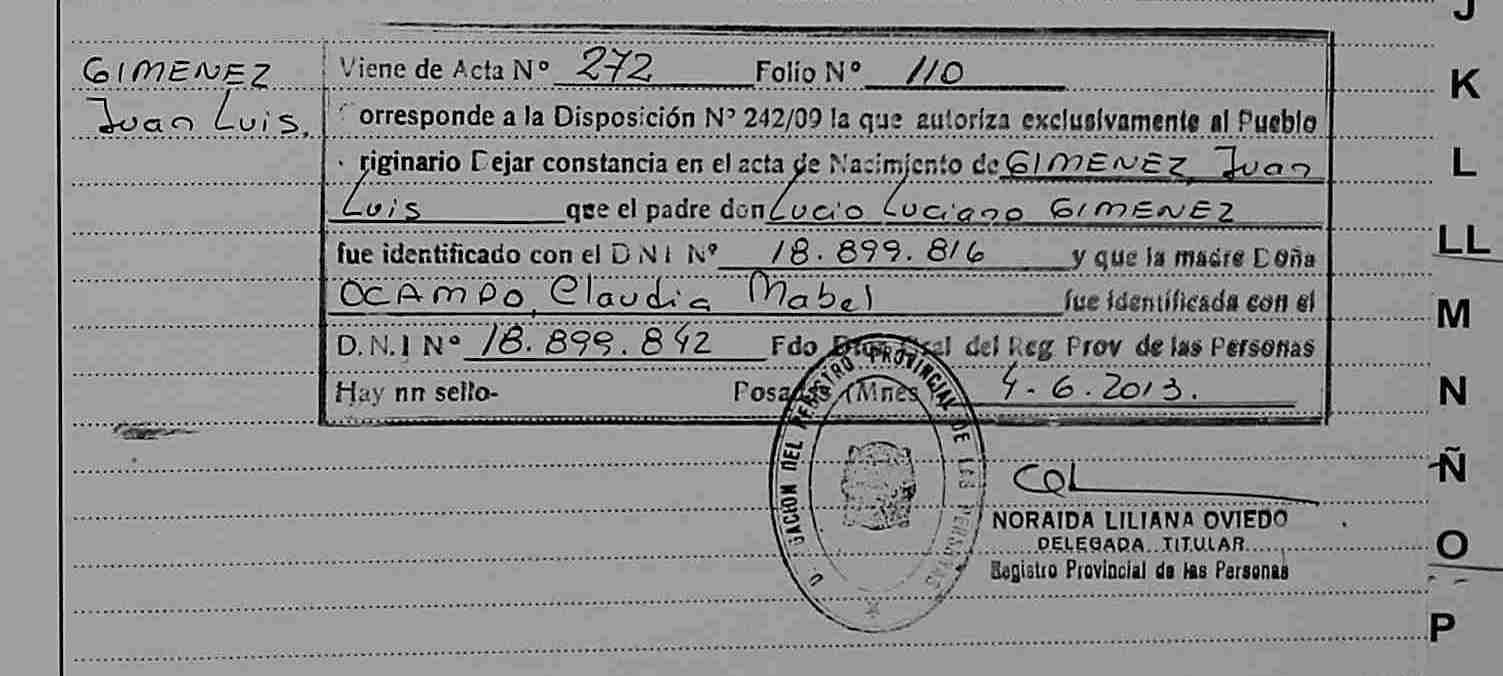 J
GIMENEZ
Juan Luis.
Viene de Acta Nº 272 Folio Nº 110
K
orresponde a la Disposición Nº 242/09 la que autoriza exclusivamente al Pueblo
riginario Dejar constancia en el acta de Nacimiento de GIMENEZ, Juan
L
Luis que el padre don Lucio Luciano GIMENEZ
fue identificado con el D N I Nº 18.899.816 y que la madre Doña
LL
OCAMPO, Claudia Mabel fue identificada con el
M
D.N.I Nº 18.899.842 Fdo Dtor Gral del Reg Prov de las Personas
Hay nn sello- Posadas (Mnes 4-6.2013.
N
Ñ
DEL REGISTRO PROVINCIAL DE LAS PERSONAS
NORAIDA LILIANA OVIEDO
DELEGADA TITULAR
O
Registro Provincial de las Personas
P